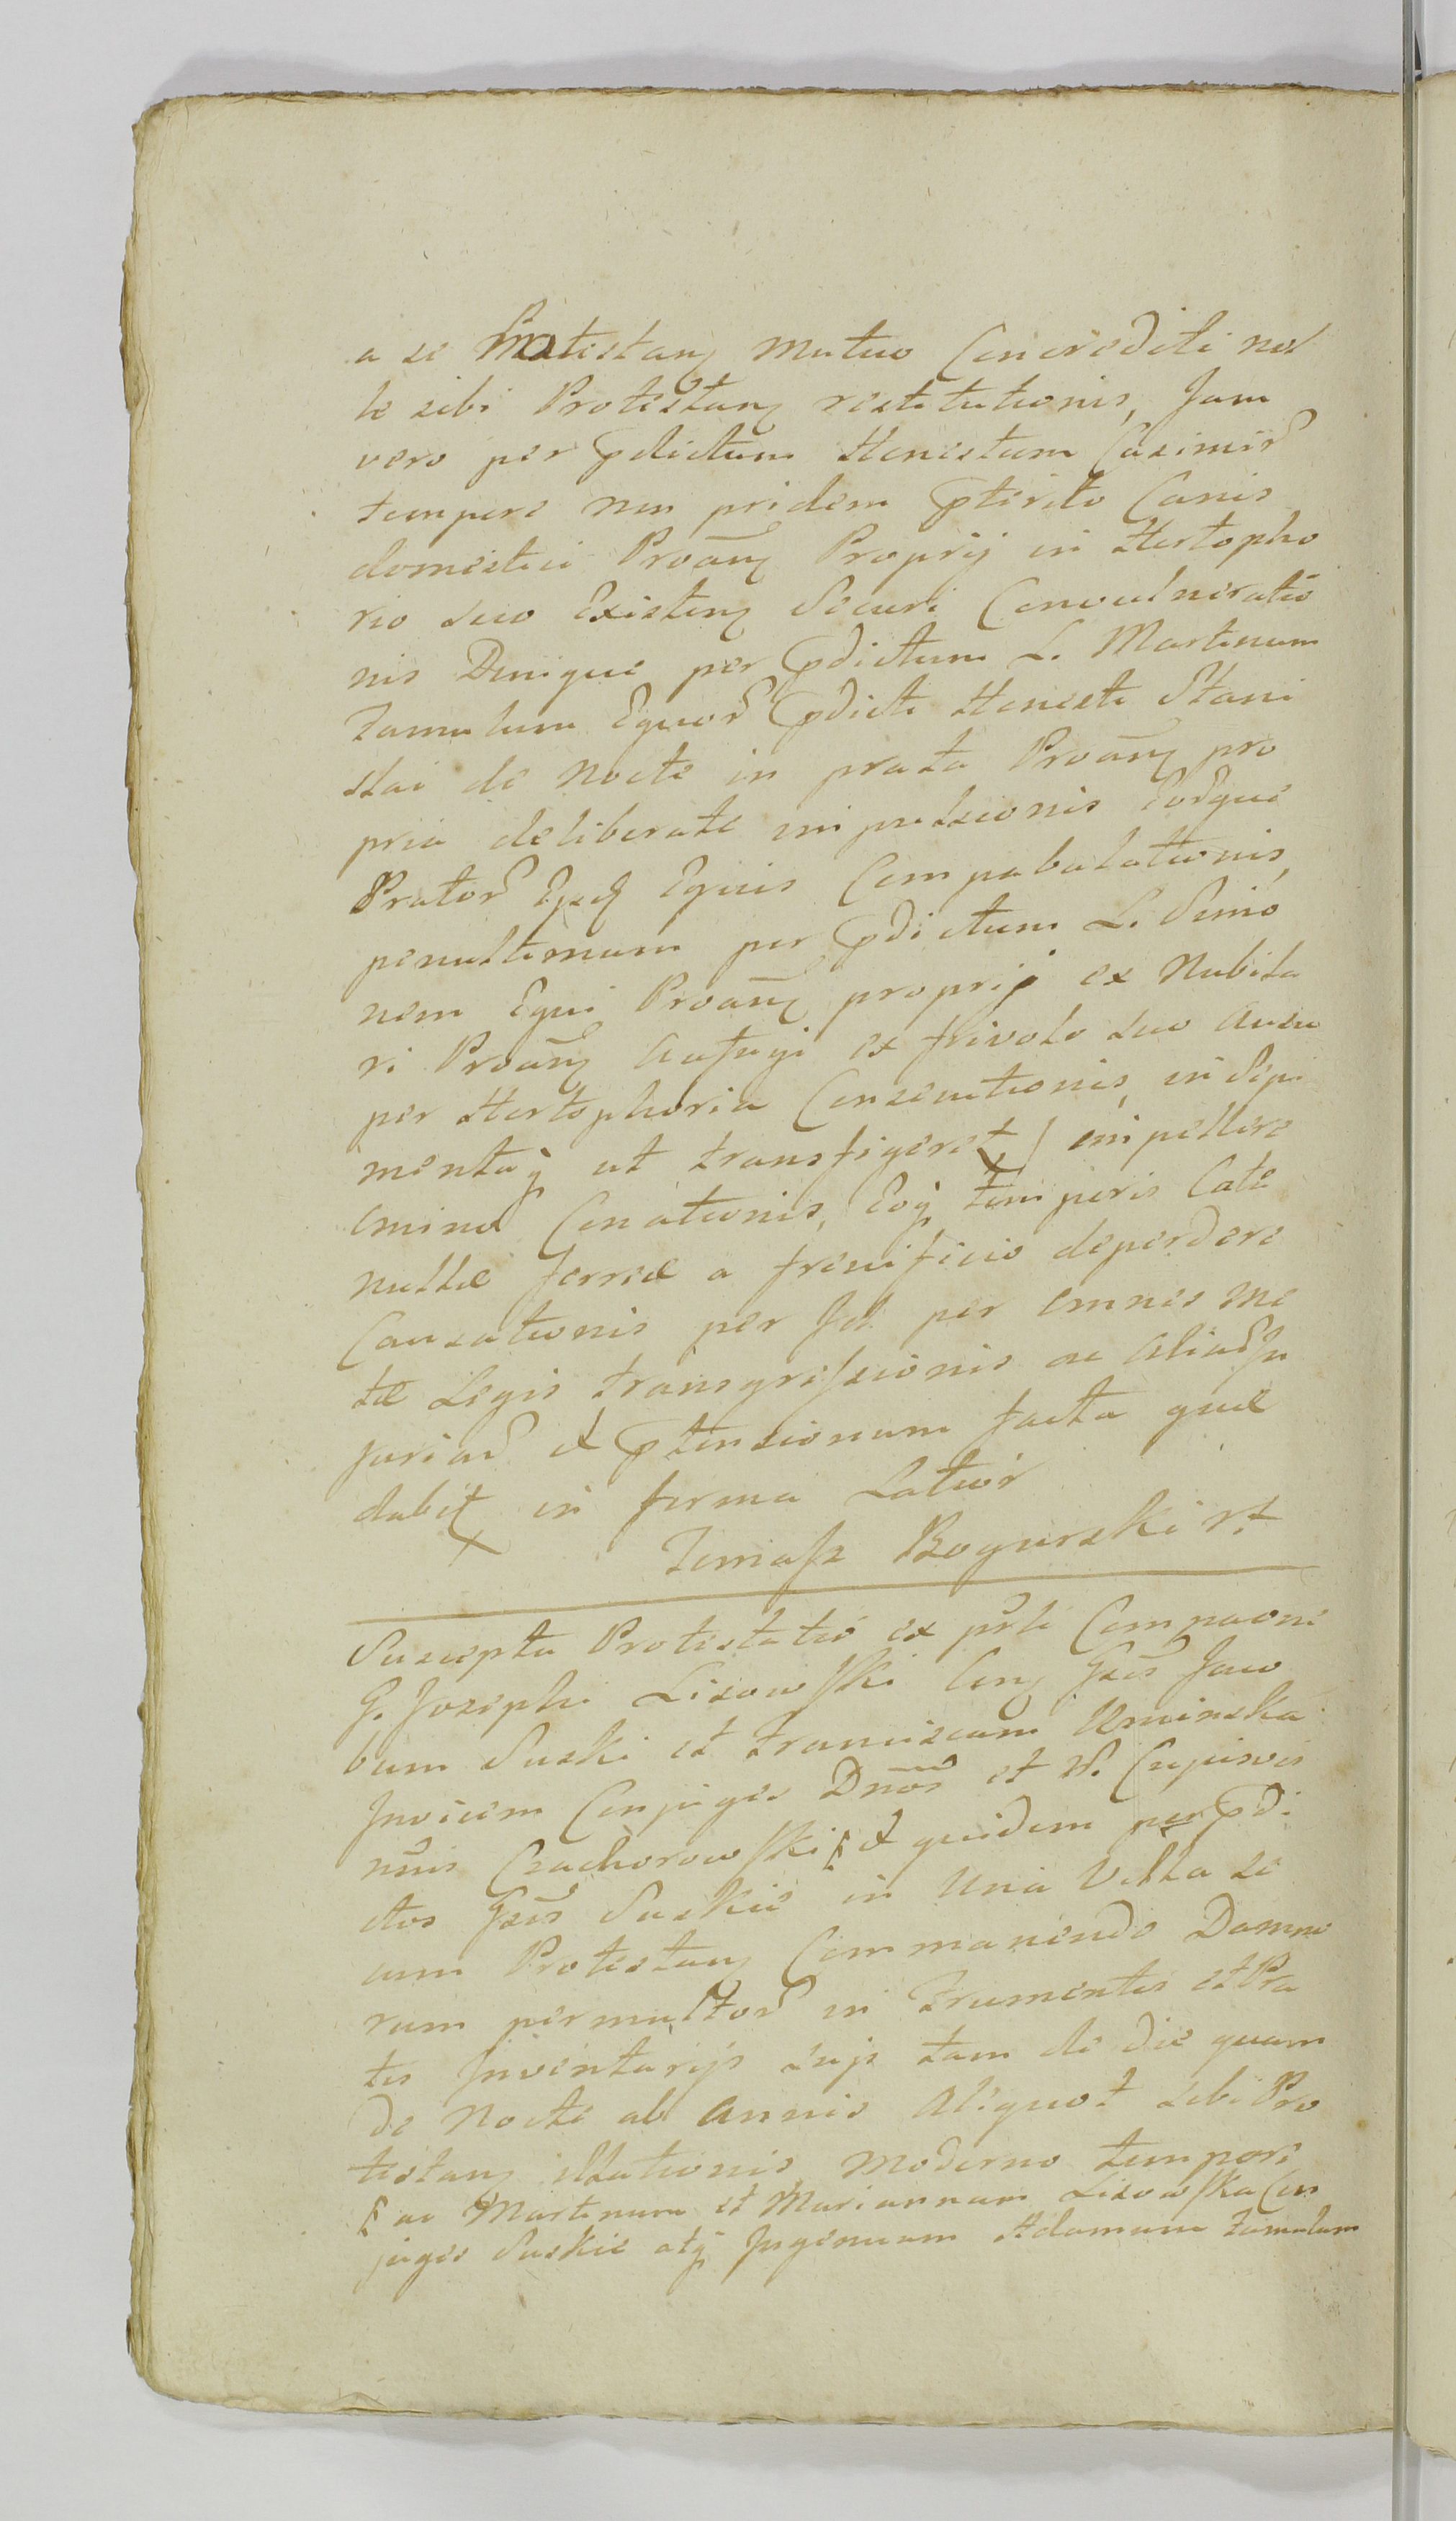 a se Protestan mutuo Concrediti nol
le sibi Protestan restitutionis, Jam
vero per pdictum Honestum Casimir
tempore non pridem pterito Canis
domestici Proan Proprij in Hortopho
rio suo Existen Securi Convulneratio
nis Denique per pdictum L. Martinum
Famulum Equor pdicti Honesti Stani
slai de Nocte in prata Proan pro
pria deliberate impulsionis Eorque
Prator Equis Compabulationis,
penultimum per pdictum L. Simo
nem Equi Proan proprij ex Nubila
ri Proan aufugi ex frivolo suo ausu
per Hortophoria Consecutionis, in Sepi
mentaq ut transfigeret / impellere
omino Conationis, Eoq temporis Cate
nullæ ferreæ a frenificio deperdere
Causationis per Id per omnes me
tæ Legis transgressionis ac Aliar In
juriar et ptensionum facta quæ
dabit in forma Latior
Tomasz Bogurski rt
Suscepta Protestatio ex prti Compaone
G. Josephi Lisowski Con Gsos Jaco
bum Suski et Franciscam Uminska
Invicem Conjuges Dnos et H. Crispi
nus Czachorowski et quidem per pdi
ctos Gsos Suskie in Una Villa se
cum Protestan Commanendo Damno
rum permultor in Frumentis et Pra
tis Inventarijs suis tam de die quam
de Nocte ab annis aliquot sibi Pro
testan illationis moderno tempore
ac Martinum et Mariannam Lisowska Con
juges Suskie atq Ingenuum Adamum Famulum